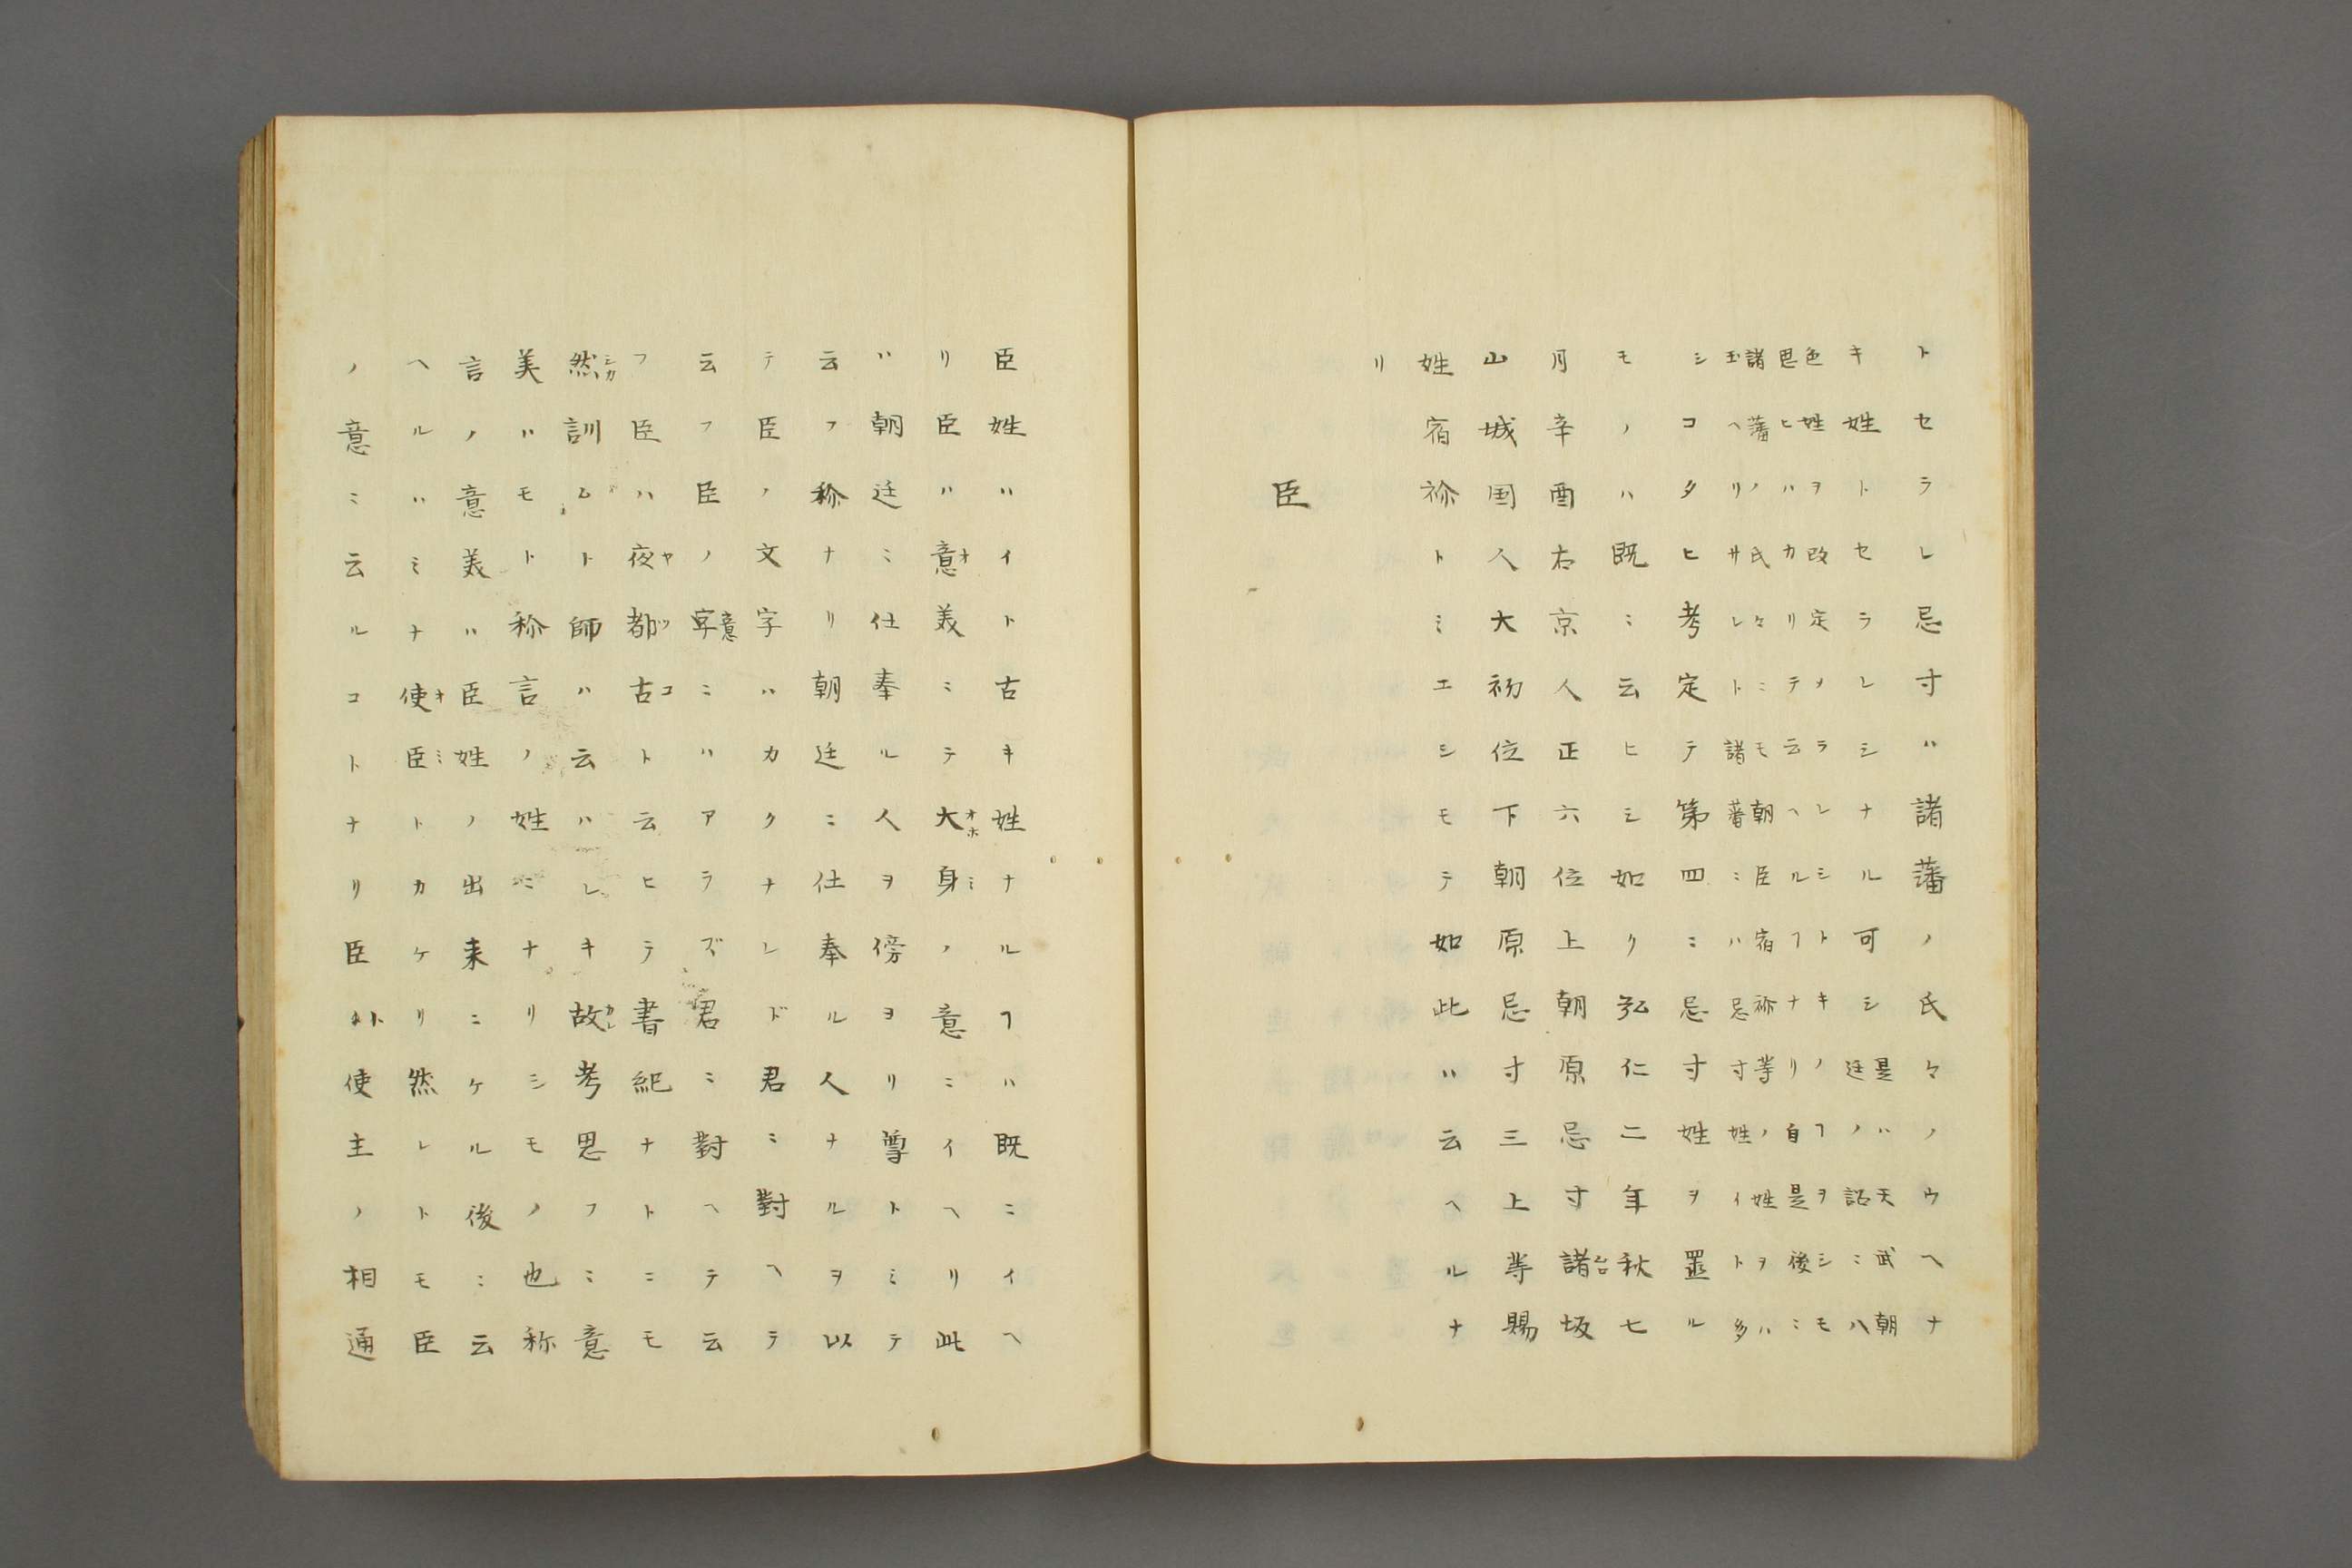 トセラレ忌寸ハ諸藩ノ氏々ノウヘナ
キ姓トセラレシナル可シ是ハ天武朝
廷ノ詔ニ八
色姓ヲ改定メラレシトキノヿヲシモ
思ヒハカリテ云ヘルヿナリ自是後ニ
諸藩ノ氏々ニモ朝臣宿祢等ノ姓ヲハ
玉ヘリサレト諸蕃ニハ忌寸姓イト多
シコタヒ考定テ第四ニ忌寸姓ヲ置ル
モノハ既ニ云ヒシ如リ弘仁二年秋七
月辛酉右京人正六位上朝原忌寸諸坂
山城国人大初位下朝原忌寸三上等賜
姓宿祢トミエシモテ如此ハ云ヘルナ
リ
臣
臣姓ハイト古キ姓ナルヿハ既ニイヘ
リ臣ハ意美ニテ大身ノ意ニイヘリ此
ハ朝廷ニ仕奉ル人ヲ傍ヨリ尊トミテ
云フ称ナリ朝廷ニ仕奉ル人ナルヲ以
テ臣ノ文字ハカクナレド君ニ對ヘテ
云フ臣ノ字意ニハアラズ君ニ對ヘテ云
フ臣ハ夜都古ト云ヒテ書紀ナトニモ
然訓ムト師ハ云ハレキ故考思フニ意
美ハモト称言ノ姓ニナリシモノ也称
言ノ意美ハ臣姓ノ出来ニケル後ニ云
ヘルハミナ使臣トカケリ然レトモ臣
ノ意ニ云ルコトナリ臣ト使主ノ相通